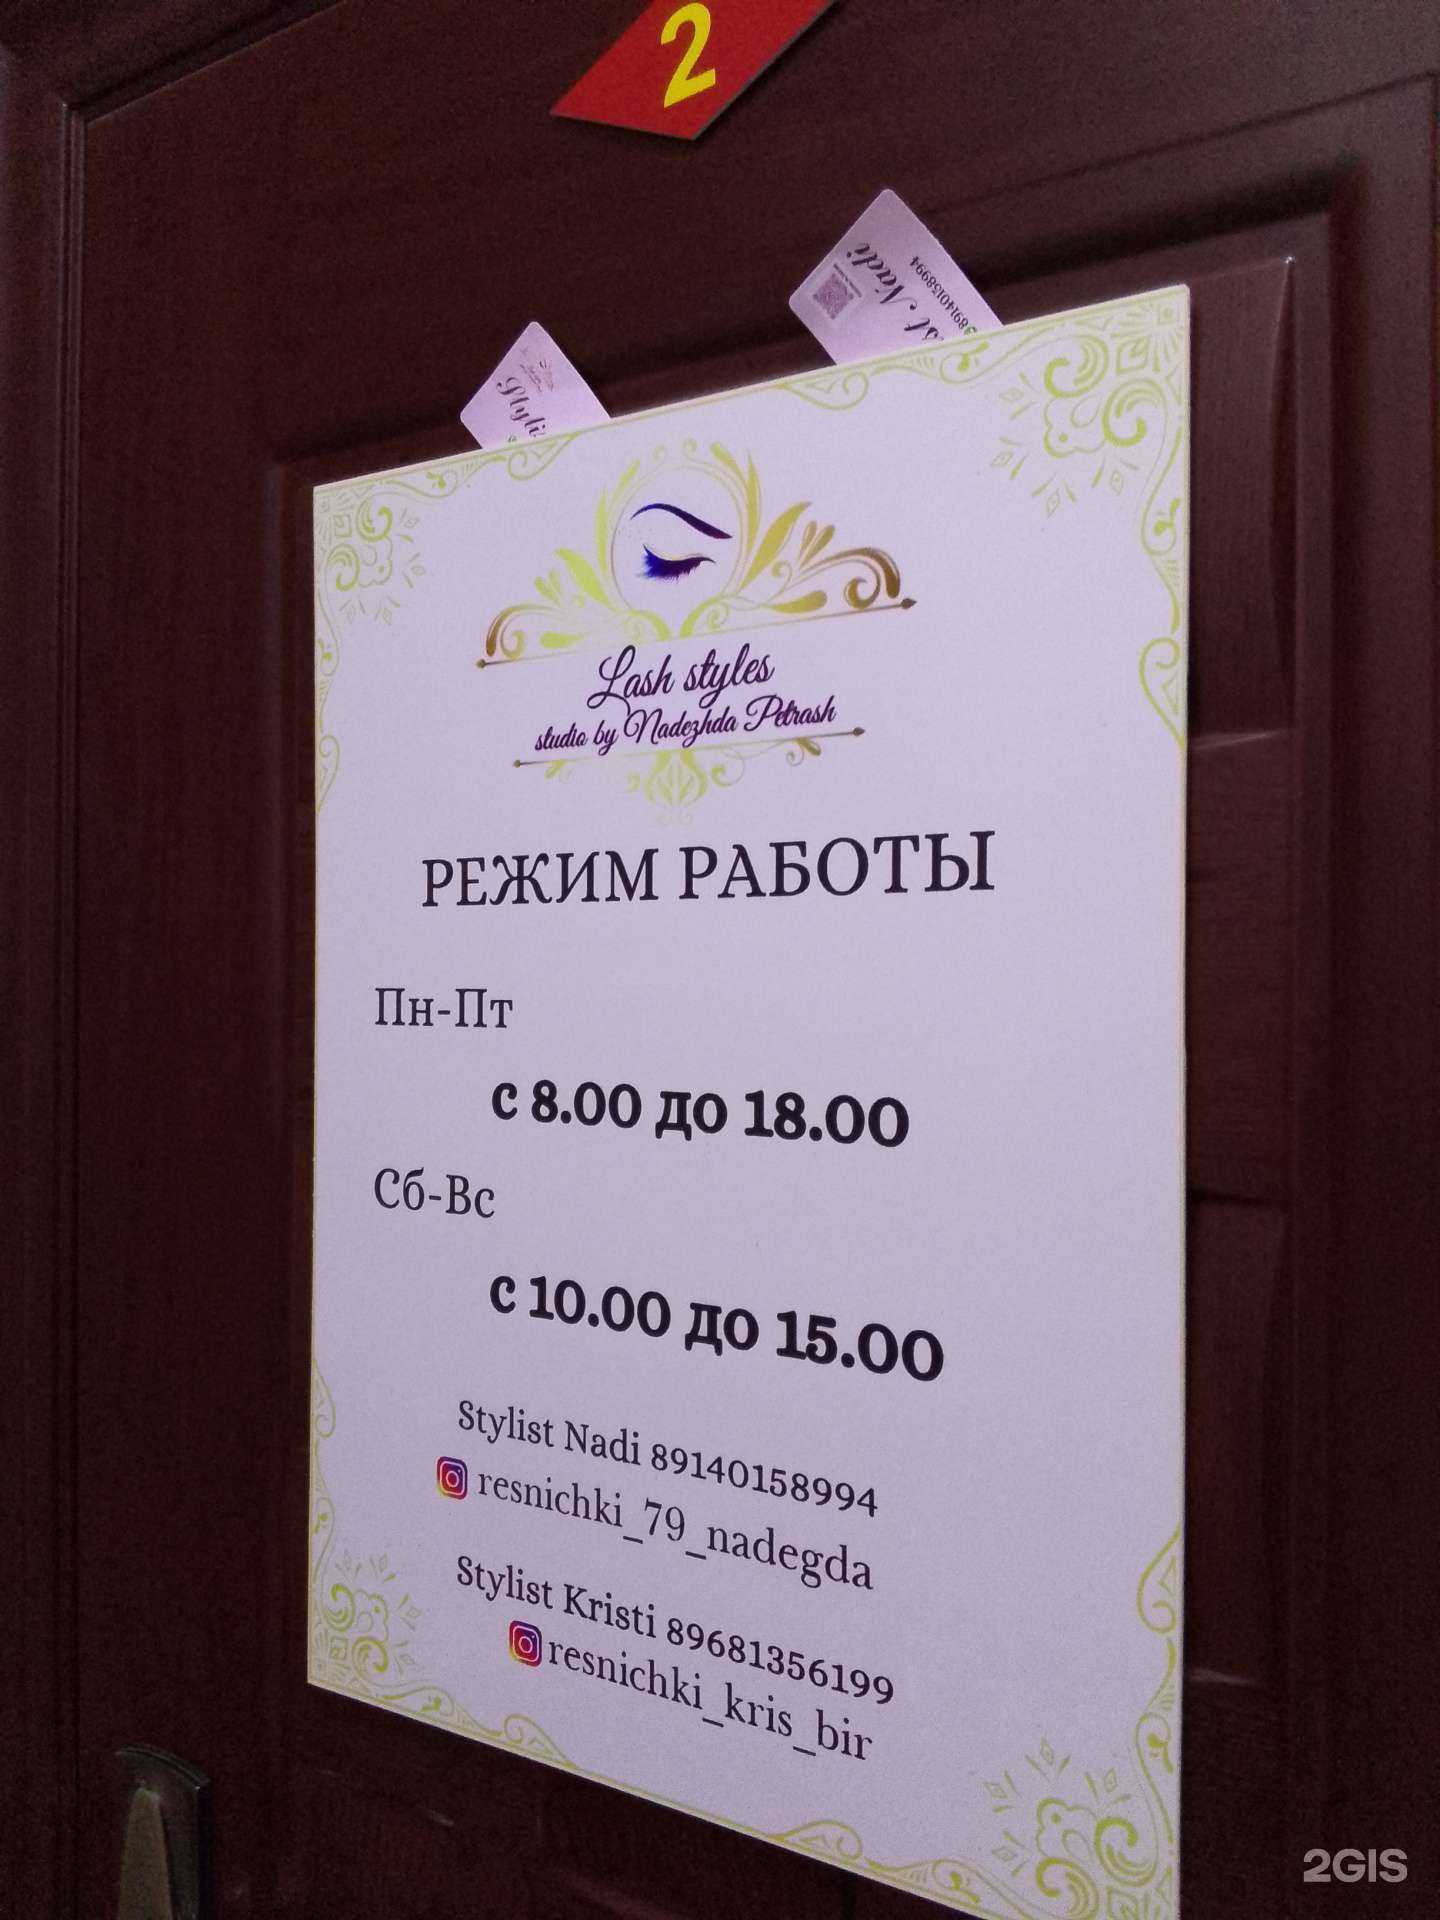 2
Nadi
89140158994
Lash styles
studio by Nadezhda Petrash
РЕЖИМ РАБОТЫ
Пн-Пт
с 8.00 до 18.00
Сб-Вс
с 10.00 до 15.00
Stylist Nadi 89140158994
resnichki_79_nadegda
Stylist Kristi 89681356199
resnichki_kris_bir
2GIS